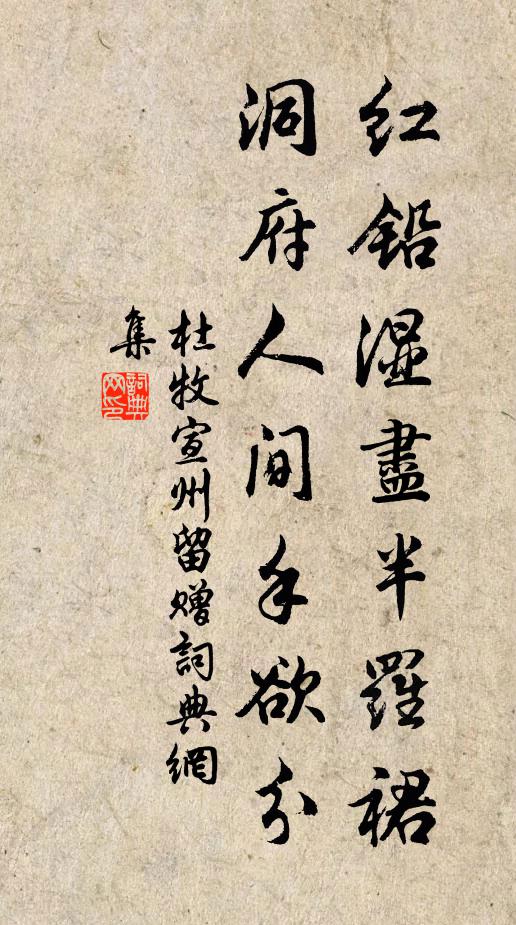 红铅湿盡半羅裙
洞府人间手欲分
杜牧宣州留赠詞典網
集
詞典
网印